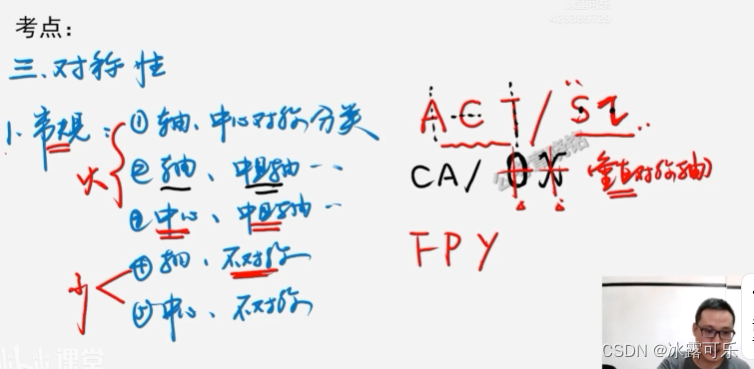 考点：
三.对称性
1.常规：
①轴、中心对称分类
②轴、中且轴…
③中心、中且轴…
④轴、不对称
⑤中心、不对称
火
少
A C T / S Z
CA / O X (垂直对称轴)
F P Y
课堂
CSDN @冰露可乐